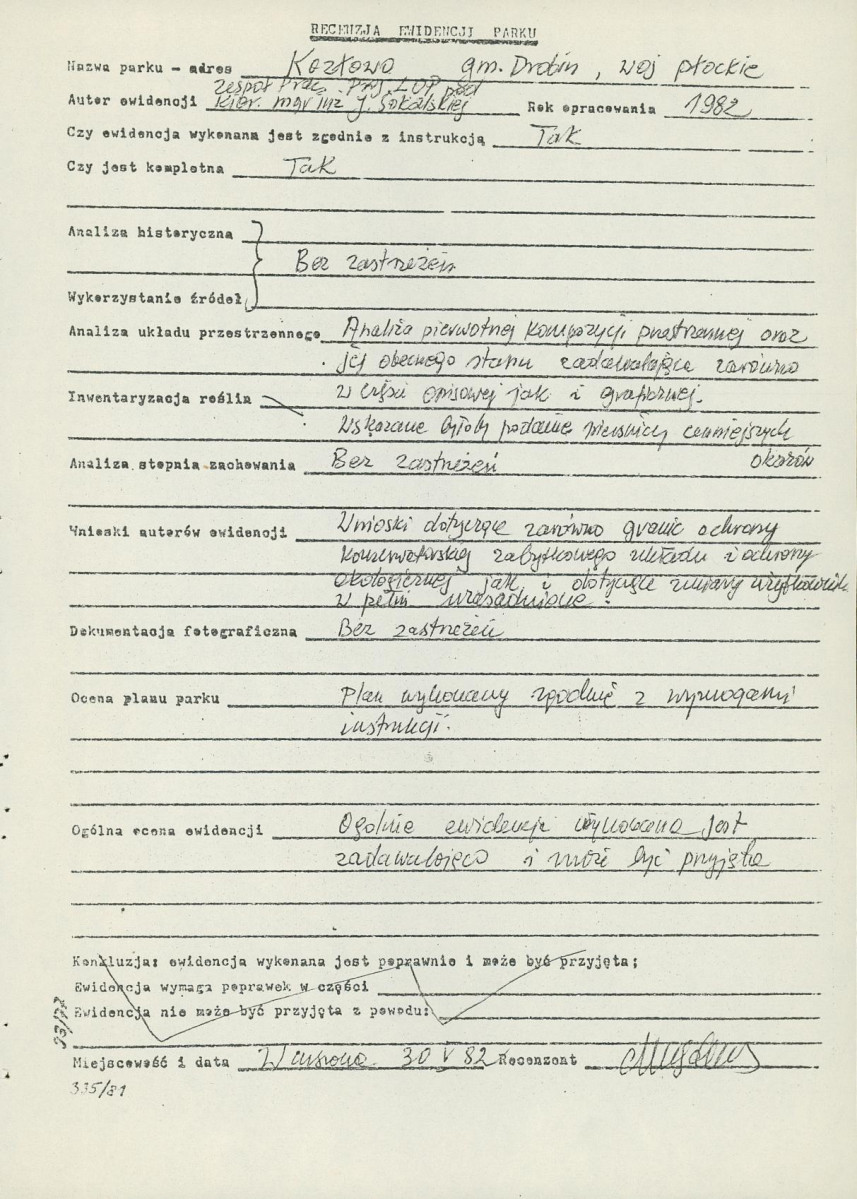 RECENZJA EWIDENCJI PARKU
Nazwa parku - adres Kozłowo gm. Drobin, woj płockie
Zespół Prac. Proj. LOP pod
Autor ewidencji Kier. mgr inż J. Sokalskiej Rok opracowania 1982
Czy ewidencja wykonana jest zgodnie z instrukcją Tak
Czy jest kompletna Tak
Analiza historyczna
Bez zastrzeżeń
Wykorzystanie źródeł
Analiza układu przestrzennego Analiza pierwotnej kompozycji przestrzennej oraz
jej obecnego stanu zadawalające zarówno
Inwentaryzacja roślin w części opisowej jak i graficznej.
Wskazane byłoby podanie pierśnicy cenniejszych
Analiza stopnia zachowania Bez zastrzeżeń okazów
Wnioski autorów ewidencji Wnioski dotyczące zarówno granic ochrony
konserwatorskiej zabytkowego układu i ochrony
ekologicznej jak i dotyczące zmiany użytkownika
w pełni uzasadnione.
Dokumentacja fotograficzna Bez zastrzeżeń
Ocena planu parku Plan wykonany zgodnie z wymogami
instrukcji.
Ogólna ocena ewidencji Ogólnie ewidencja wykonana jest
zadawalająco i może być przyjęta
Konkluzja: ewidencja wykonana jest poprawnie i może być przyjęta;
Ewidencja wymaga poprawek w części
Ewidencja nie może być przyjęta z powodu:
Miejscowość i data Warszawa 30 V 82 Recenzent
335/81